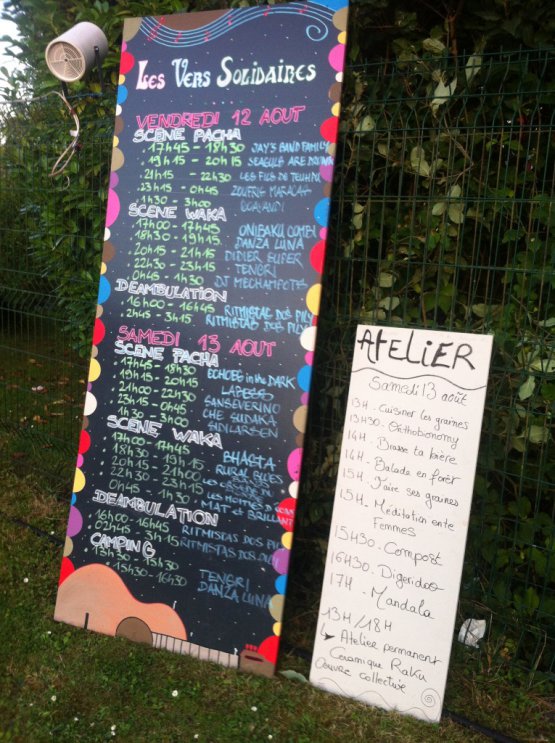 Les Vers Solidaires
VENDREDI 12 AOUT
SCENE PACHA
17H45 - 18H30 JAY'S BAND FAMILY
19H15 - 20H15 SEAGULLS ARE DRUNK
21H15 - 22H30 LES FILS DE TEUHPU
23H15 - 0H45 ZOUFRIS MARACAS
1H30 - 3H00
SCENE WAKA
17H00 - 17H45 ONIBAKU COMBI
18H30 - 19H15 DANZA LUNA
20H15 - 21H15 DIDIER SUPER
22H30 - 23H15 TENGRI
0H45 - 1H30 DJ MECHAMFOTS
DEAMBULATION
16H00 - 16H45 RITMISTAS DOS PILY
2H45 - 3H15 RITMISTAS DOS PILY
SAMEDI 13 AOUT
SCENE PACHA
17H45 - 18H30 ECHOES in the DARK
19H15 - 20H15
21H00 - 22H30 SANSEVERINO
23H15 - 0H45 CHE SUDAKA
1H30 - 3H00
SCENE WAKA
17H00 - 17H45 BHAGTA
18H30 - 19H15 RURAL BLUES
20H15 - 21H00
22H30 - 23H15 LES HOMMES
0H45 - 1H30 MAT et BRILLANT
DEAMBULATION
16H00 - 16H45 RITMISTAS DOS PILY
02H45 - 3H15 RITMISTAS DOS PILY
CAMPING
13H30 - 15H30 TENGRI
15H30 - 16H30 DANZA LUNA
ATELIER
Samedi 13 août
13H - Cuisiner les graines
13H30 - Orthobionomy
14H - Brasse ta bière
14H - Balada en forêt
15H - Faire ses graines
15H - Méditation entre
Femmes
15H30 - Compost
16H30 - Digeridoo
17H - Mandala
13H/18H
↳ Atelier permanent
Ceramique Raku
Oeuvre collective